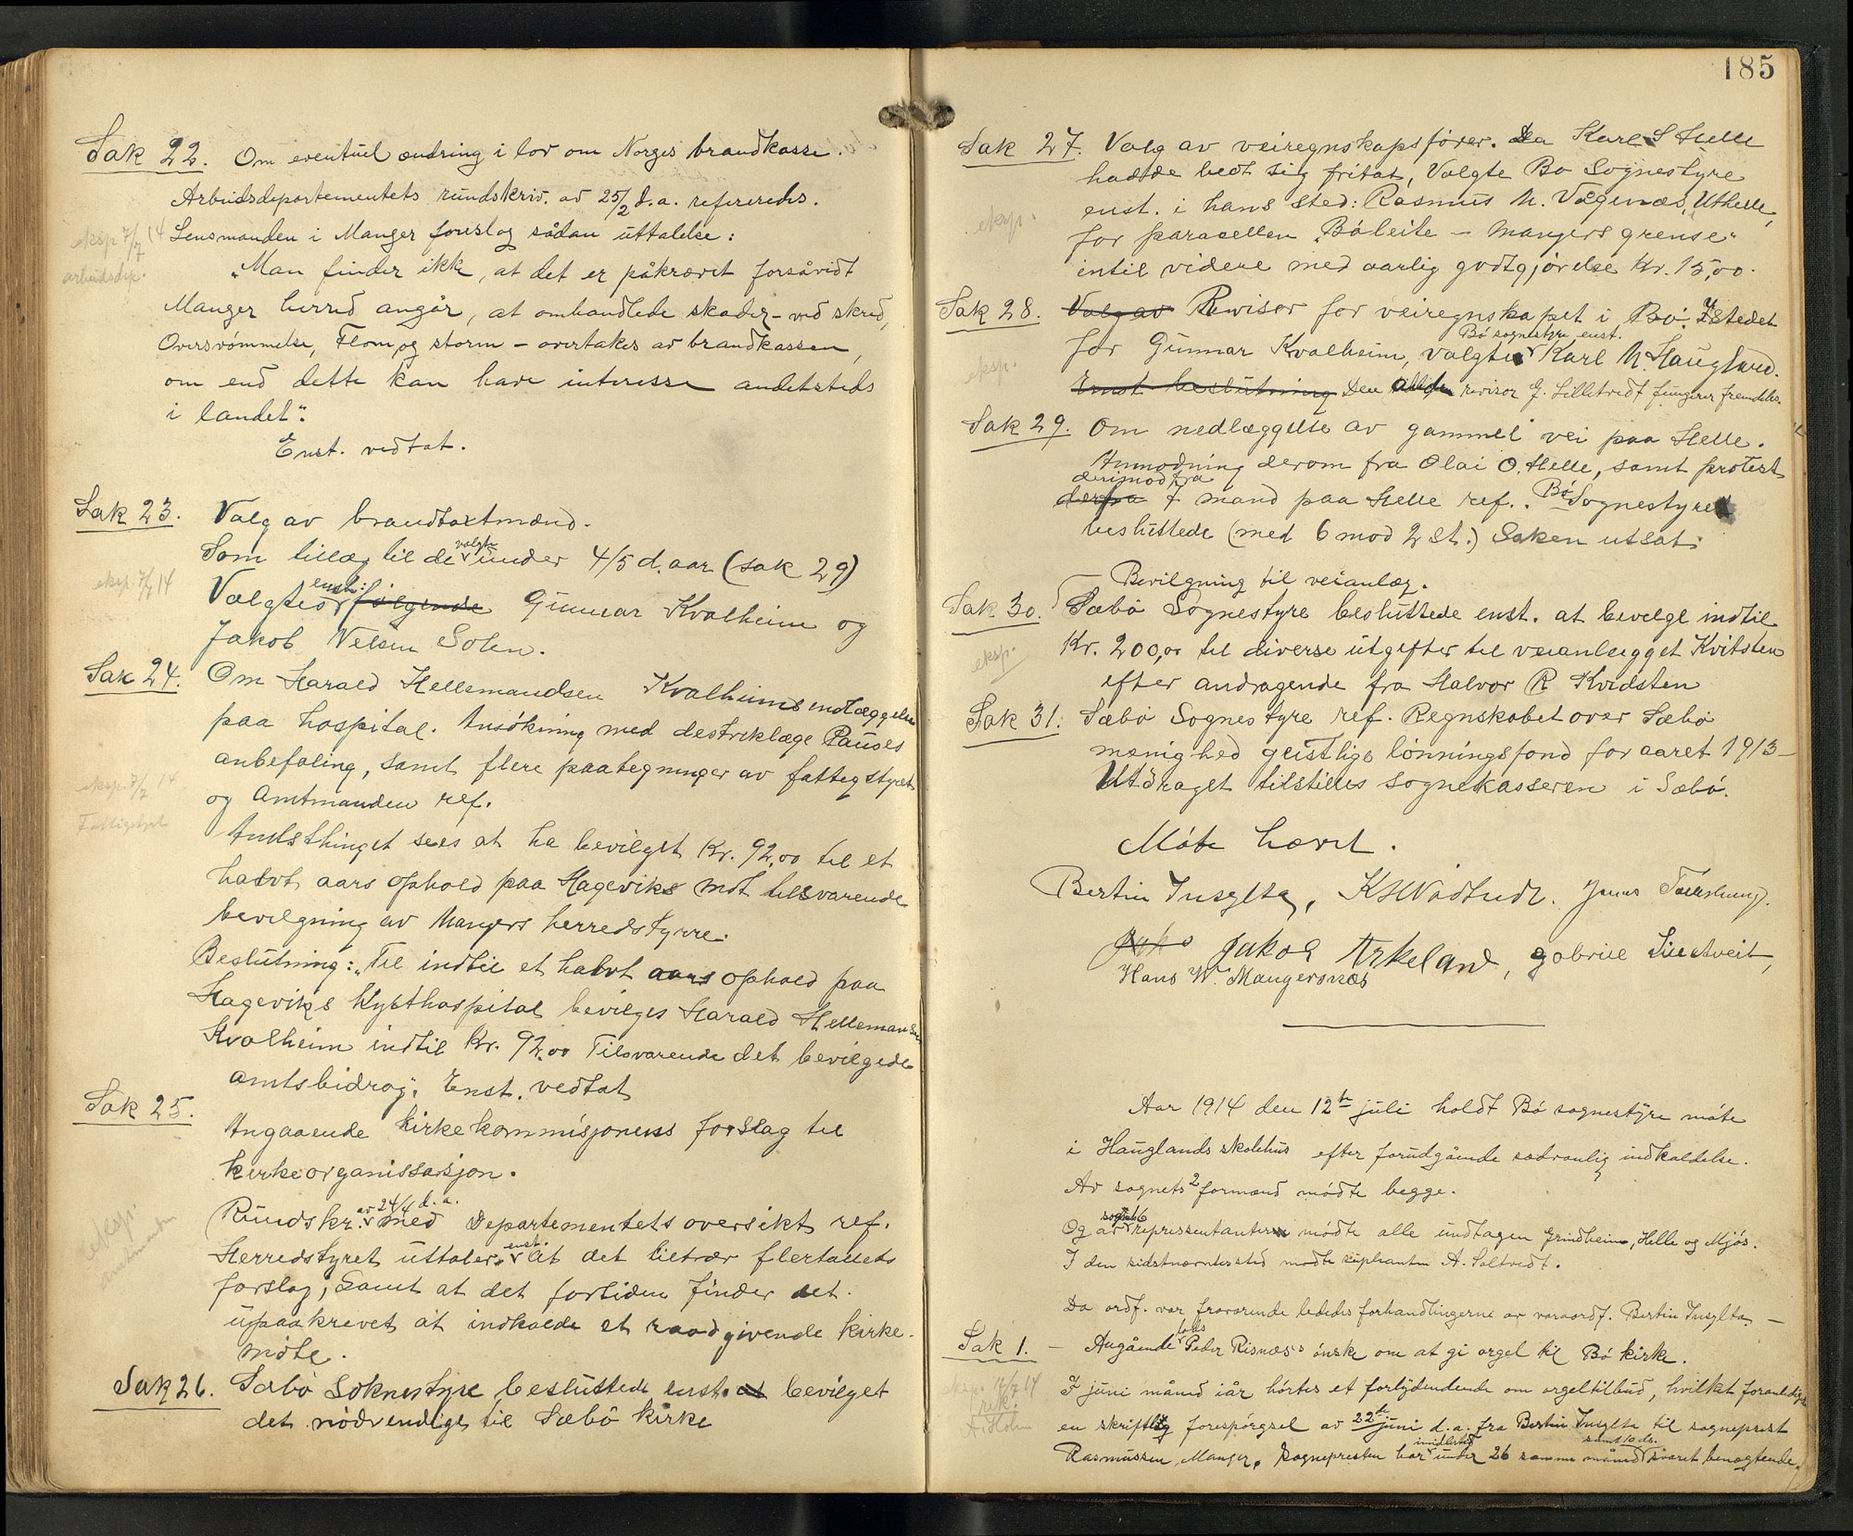 Sak 22. Om eventuel ændring i lov om Norges brandkasse.
Arbeidsdepartementets rundskriv. av 25/2 d.a. refereredes.
eksp 7/7 14
arbeidsdep.
Lensmanden i Manger foreslog sådan uttalelse:
"Man finder ikke, at det er påkrævet forsåvidt
Manger herred angår, at omhandlede skader - ved skred,
Oversvømmelse, Flom, og storm - overtakes av brandkassen,
om end dette kan have interesse andetsteds
i landet".
Enst. vedtat.
Sak 23. Valg av brandtaxtmænd.
Som tillæg til de valgte under 4/5 d. aar (sak 29)
eksp. 7/7 14
Valgtes enst.: følgende Gunnar Kvalheim og
Jakob Nelsen Solen.
Sak 24. Om Harald Hellemandsen Kvalheims indlæggelse
paa hospital. Ansøkning med destriklæge Pauses
anbefaling, samt flere paategninger av fattigstyret
eksp. 7/7 14
Fattigstyret
og Amtmanden ref.
Amtsthinget sees at ha bevilget Kr. 92,00 til et
halvt aars ophold paa Hageviks mot tilsvarende
bevilgning av Mangers herredstyre.
Beslutning: "Til indtil et halvt aars ophold paa
Hageviks Kysthospital bevilges Harald Hellemansen
Kvalheim indtil Kr. 92,00 Tilsvarende det bevilgede
amtsbidrag". Enst. vedtat
Sak 25. Angaaende kirkekommisjonens forslag til
kirkeorganisasjon.
Rundskr. av 24/4 d.a. med Departementets oversikt ref.
eksp.
amtmanden
Herredstyret uttaler enst. At det tiltrær flertallets
forslag; Samt at det fortiden finder det
upaakrevet at indkalde et raadgivende kirke-
møte.
Sak 26. Sæbø Soknestyre besluttede enst. at bevilget
det nødvendige til Sæbø kirke
185
Sak 27. Valg av veiregnskapsfører. Da Karl S Helle
hadde bedt sig fritat, Valgte Bø Sognestyre
eksp.
enst. i hans sted: Rasmus N. Vågenæs, Uthelle,
for paracellen "Bøleite - Mangers grense"
intil videre med aarlig godtgjørelse Kr. 15,00.
Sak 28. Valg av Revisor for veiregnskapet i Bø. Istedet
for Gunnar Kvalheim, valgte Bø sognestyre enst. Karl N. Haugland.
eksp.
Enst beslutning Den anden revisor G. Silletvedt fungerer fremdeles.
Sak 29. Om nedlæggelse av gammel vei paa Helle.
Anmodning derom fra Olai O. Helle, samt protest
derimod fra
derfra 7 mand paa Helle ref. Bø Sognestyre
besluttede (med 6 mod 2 st.) Saken utsat.
Bevilgning til veianlæg.
Sak 30. Sæbø Sognestyre besluttede enst. at bevilge indtil
Kr. 200,00 til diverse utgifter til veianlægget Kvitsten
eksp.
efter andragende fra Halvor R Kvidsten
Sak 31. Sæbø Sognestyre ref. Regnskabet over Sæbø
menighed geistlige lønningsfond for aaret 1913-
Utdraget tilstilles sognekasseren i Sæbø.
Møte hævet.
Bertin Tusylta,
Jakob Askeland, gabriel Silletveit,
Hans W. Mangersnæs
Aar 1914 den 12te juli holdt Bø sognestyre møte
i Hauglands skolehus efter forudgående sædvanlig indkaldelse.
Av sognets 2 formænd mødte begge.
Og av sognets 16 repressentanter mødte alle undtagen Grindheim, Helle og Mjøs.
I den sidstnævntes sted mødte supleanten A. Soltvedt.
Da ordf. var fraværende lededes forhandlingerne av varaordf. Bertin Tusylta.
Sak 1. - Angående Peder Risnæs's ønske om at gi orgel til Bø kirke.
I juni måned iår hørtes et forlydendende om orgeltilbud, hvilket foranlediget
eksp. 17/7 14
A. Holm
en skriftlig forespørgsel av 22de juni d.a. fra Bertin Tusylta til sogneprest
Rasmussen, Manger. Sognepresten har imidlertid under 26 samme måned samt 10 ds. svaret benægtende.